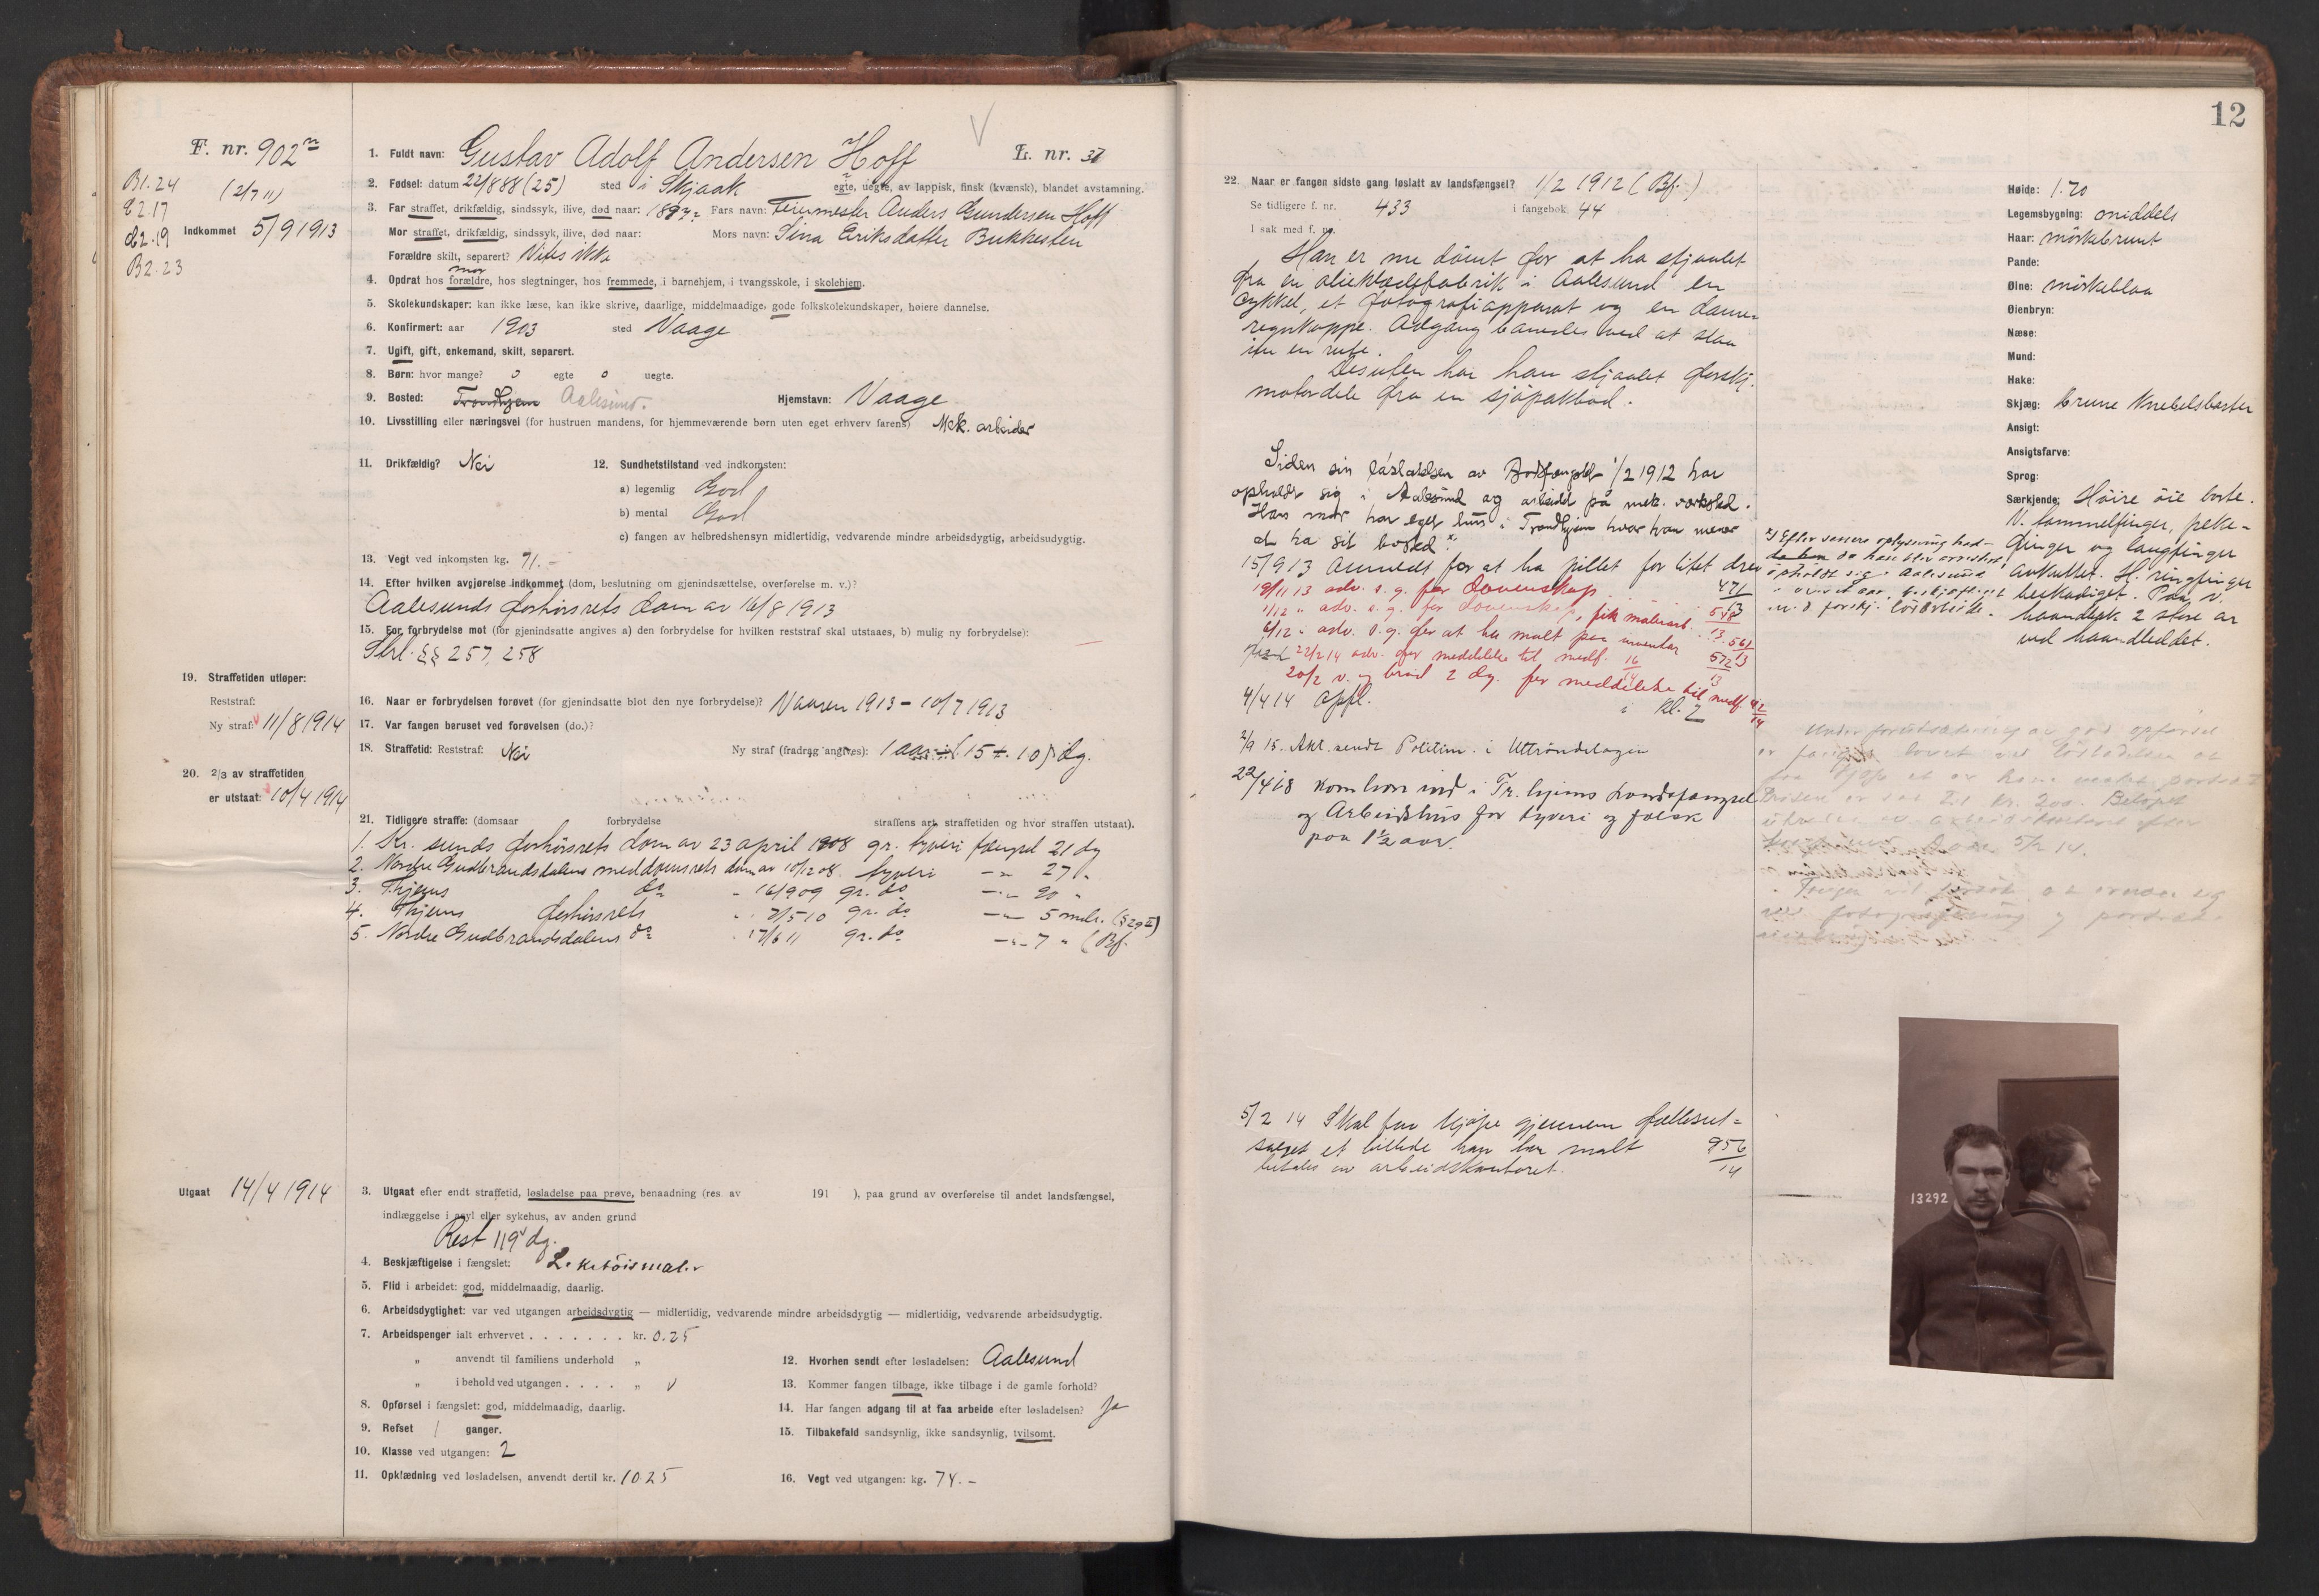 F. nr. 902
B1.24
(2/7 11)
B2.17
B2.19
B2.23
Indkommet 5/9 1913
1. Fuldt navn: Gustav Adolf Andersen Hoff
L. nr. 37
2. Fødsel: datum 22/8 88 (25) sted i Skjaak egte, uegte, av lappisk, finsk (kvænsk), blandet avstamning.
3. Far straffet, drikfældig, sindssyk, ilive, død naar: Fars navn: Anders Gundersen Hoff
Mor straffet, drikfældig, sindssyk, ilive, død naar: Mors navn: Sina Eriksdatter Bukkesten
Forældre skilt, separert? Vites ikke
mor
4. Opdrat hos forældre, hos slegtninger, hos fremmede, i barnehjem, i tvangsskole, i skolehjem.
5. Skolekundskaper: kan ikke læse, kan ikke skrive, daarlige, middelmaadige, gode folkskolekundskaper, høiere dannelse.
6. Konfirmert: aar 1903 sted Vaage
7. Ugift, gift, enkemand, skilt, separert.
8. Børn: hvor mange? 0 egte 0 uegte.
9. Bosted: Trondhjem Aalesund. Hjemstavn: Vaage
10. Livsstilling eller næringsvei (for hustruen mandens, for hjemmeværende børn uten eget erhverv farens) Mek. arbeider
11. Drikfældig? Nei
12. Sundhetstilstand ved indkomsten:
a) legemlig God
b) mental God
c) fangen av helbredshensyn midlertidig, vedvarende mindre arbeidsdygtig, arbeidsudygtig.
13. Vegt ved inkomsten kg. 71.-
14. Efter hvilken avgjørelse indkommet (dom, beslutning om gjenindsættelse, overførelse m. v.)?
Aalesunds forhørsrets dom av 16/8 1913
15. For forbrydelse mot (for gjenindsatte angives a) den forbrydelse for hvilken reststraf skal utstaaes, b) mulig ny forbrydelse):
Strl. §§ 257, 258
16. Naar er forbrydelsen forøvet (for gjenindsatte blot den nye forbrydelse)? Vaaren 1913 - 10/7 1913
17. Var fangen beruset ved forøvelsen (do.)?
18. Straffetid: Reststraf: Nei Ny straf (fradrag angives): 1 aar ÷ (15 + 10) dg.
19. Straffetiden utløper:
Reststraf:
Ny straf: 11/8 1914
20. 2/3 av straffetiden
er utstaat: 10/4 1914
21. Tidligere straffe: (domsaar forbrydelse straffens art, straffetiden og hvor straffen utstaat).
1. Kr. sunds forhørsrets dom av 23 april 1908 gr. tyveri fængsel 21 dg
2. Nordre Gudbrandsdalens meddomsrets dom av 10/12 08. tyveri -"- 27 "
3. Thjems do " 16/9 09 gr. do -"- 90 "
4. Thjems forhørsrets " 7/5 10 gr. do -"- 5 mdr. (§ 29 II)
5. Nordre Gudbrandsdalens do " 17/6 11 gr. do -"- 7 " (Bf.
Utgaat 14/4 1914
3. Utgaat efter endt straffetid, løsladelse paa prøve, benaadning (res. av 191 ), paa grund av overførelse til andet landsfængsel,
indlæggelse i asyl eller sykehus, av anden grund
Rest 119 dg.
4. Beskjæftigelse i fængslet: Leketøismaler
5. Flid i arbeidet: god, middelmaadig, daarlig.
6. Arbeidsdygtighet: var ved utgangen arbeidsdygtig — midlertidig, vedvarende mindre arbeidsdygtig — midlertidig, vedvarende arbeidsudygtig.
7. Arbeidspenger ialt erhvervet . . . . . . . kr. 0.25
" anvendt til familiens underhold "
" i behold ved utgangen . . . . "
8. Opførsel i fængslet: god, middelmaadig, daarlig.
9. Refset / ganger.
10. Klasse ved utgangen: 2
11. Opklædning ved løsladelsen, anvendt dertil kr. 10.25
12. Hvorhen sendt efter løsladelsen: Aalesund
13. Kommer fangen tilbage, ikke tilbage i de gamle forhold?
14. Har fangen adgang til at faa arbeide efter løsladelsen? Ja
15. Tilbakefald sandsynlig, ikke sandsynlig, tvilsomt.
16. Vegt ved utgangen: kg. 74.-
12
22. Naar er fangen sidste gang løslatt av landsfængsel? 1/2 1912 (Bf.)
Se tidligere f. nr. 433 i fangebok 44
I sak med f. nr.
Han er nu dømt for at ha stjaalet
fra en olieklædefabrik i Aalesund en
cykkel, et fotografiapparat og en dame-
regnkappe. Adgang banedes ved at slaa
ind en rute.
Desuten har han stjaalet forskj.
motordele fra en sjøpakbod.
Siden sin løslatelse av Bodsfængslet 1/2 1912 har
opholdt sig i Aalesund og arbeidet på mek. verksted.
Hans mor har eget hus i Trondhjem hvor han mener
at ha sit bosted x)
15/9 13 anmeldt for at ha pillet for litet drev 471/13
19/11 13 adv. s. g. for dovenskap 548/13
1/12 " adv. s. g. for dovenskap, fik malerarb. 561/13
6/12 " adv. s. g. for at ha malt paa inventar 572/13
22/2 14 adv. for meddelelse til medf. 16/14
20/2 v. og brød 2 dg. for meddelelse til medf. 42/14
4/4 14 Opfl. i kl. 2
2/9 15. Akt. sendt Politim. i Uttrøndelagen
22/4 18 kom han ind i Tr.hjems Landsfængsel
og Arbeidshus for tyveri og falsk
paa 1 1/2 aar.
5/2 14 Skal faa kjøpe gjennem fællesut-
salget et billede han har malt 956/14
betales av arbeidskontoret.
Høide: 1.70
Legemsbygning: middels
Haar: mørkebrunt
Pande:
Øine: mørkeblaa
Øienbryn:
Næse:
Mund:
Hake:
Skjæg: brune Knebelsbarter
Ansigt:
Ansigtsfarve:
Sprog:
Særkjende: Høire øie borte.
V. tommelfinger, peke-
finger og langfinger
avkuttet. H. ringfinger
beskadiget. Paa v.
haandbak 2 store ar
ved haandleddet.
x) Efter senere oplysning had-
de han da han blev arresteret
opholdt sig i Aalesund
13292